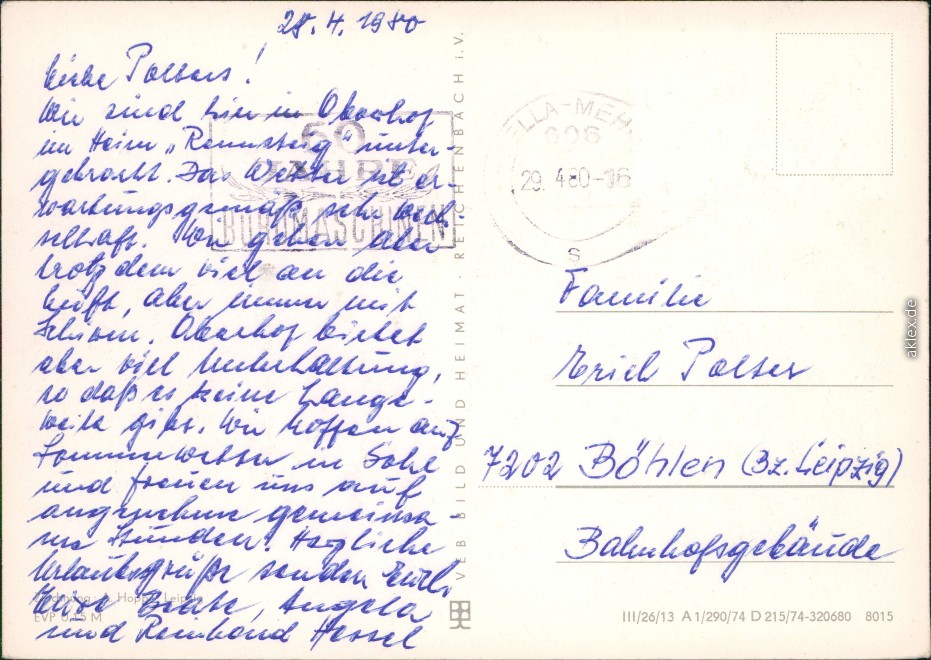 28.4.1980
Liebe Polters!
Wir sind hier in Oberhof
im Heim „Rennsteig" unter-
gebracht. Das Wetter ist er-
wartungsgemäß sehr wech-
selhaft. Wir gehen aber
trotzdem viel an die
Luft, aber immer mit
Schirm. Oberhof bietet
aber viel Unterhaltung,
so daß es keine Lange-
weile gibt. Wir hoffen auf
Sommerwetter in
und freuen uns auf
angenehme gemeinsa-
me Stunden. Herzliche
Urlaubsgrüße senden Euch
Beate, Angela
und Reinhard Hessel
60
JAHRE
BÜROMASCHINEN
ELLA-MEH
606
29. 4.80-16
s
Familie
Erich Polter
7202 Böhlen (Bz. Leipzig)
Bahnhofsgebäude
VEB BILD UND HEIMAT · REICHENBACH i.V.
EVP 0,15 M
III/26/13 A 1/290/74 D 215/74-320680 8015
aklex.de